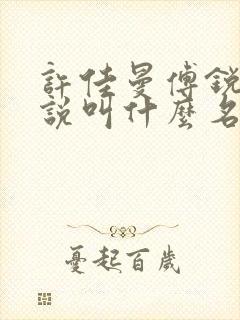 許佳曼傅銳
說叫什麼名
憂起百歲